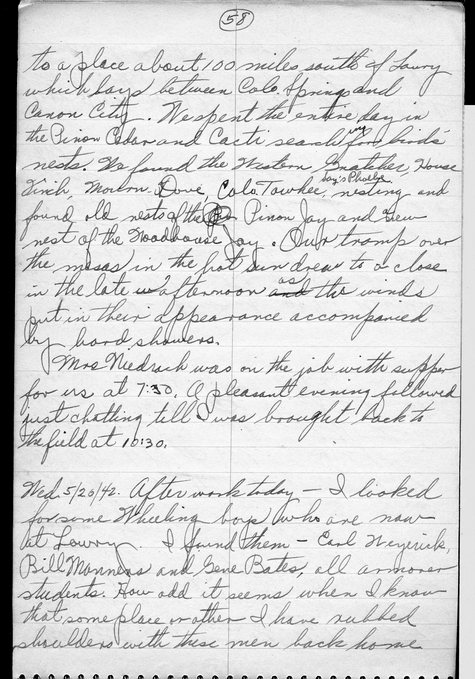 58
to a place about 100 miles south of Lowry
which lays between Colo. Springs and
Canon City. We spent the entire day in
the Pinon Cedar and Cacti searching for birds'
nests. We found the Western Gnatcher, House
Finch, Mourn. Dove, Colo. Towhee, Say's Phoebe, nesting and
found old nests of the Pinon Jay and new
nest of the Woodhouse Jay. Our tromp over
the mesas in the hot sun drew to a close
in the late afternoon as the winds
put in their appearance accompanied
by hard showers.
Mrs Niedrach was on the job with supper
for us at 7:30. A pleasant evening followed
just chatting till I was brought back to
the field at 10:30.
Wed. 5/20/42. After work today - I looked
for some Wheeling boys who are now
at Lowry. I found them - Carl
Bill Manners and Gene Bates, all armorer
students. How odd it seems when I know
that some place or other I have rubbed
shoulders with these men back home